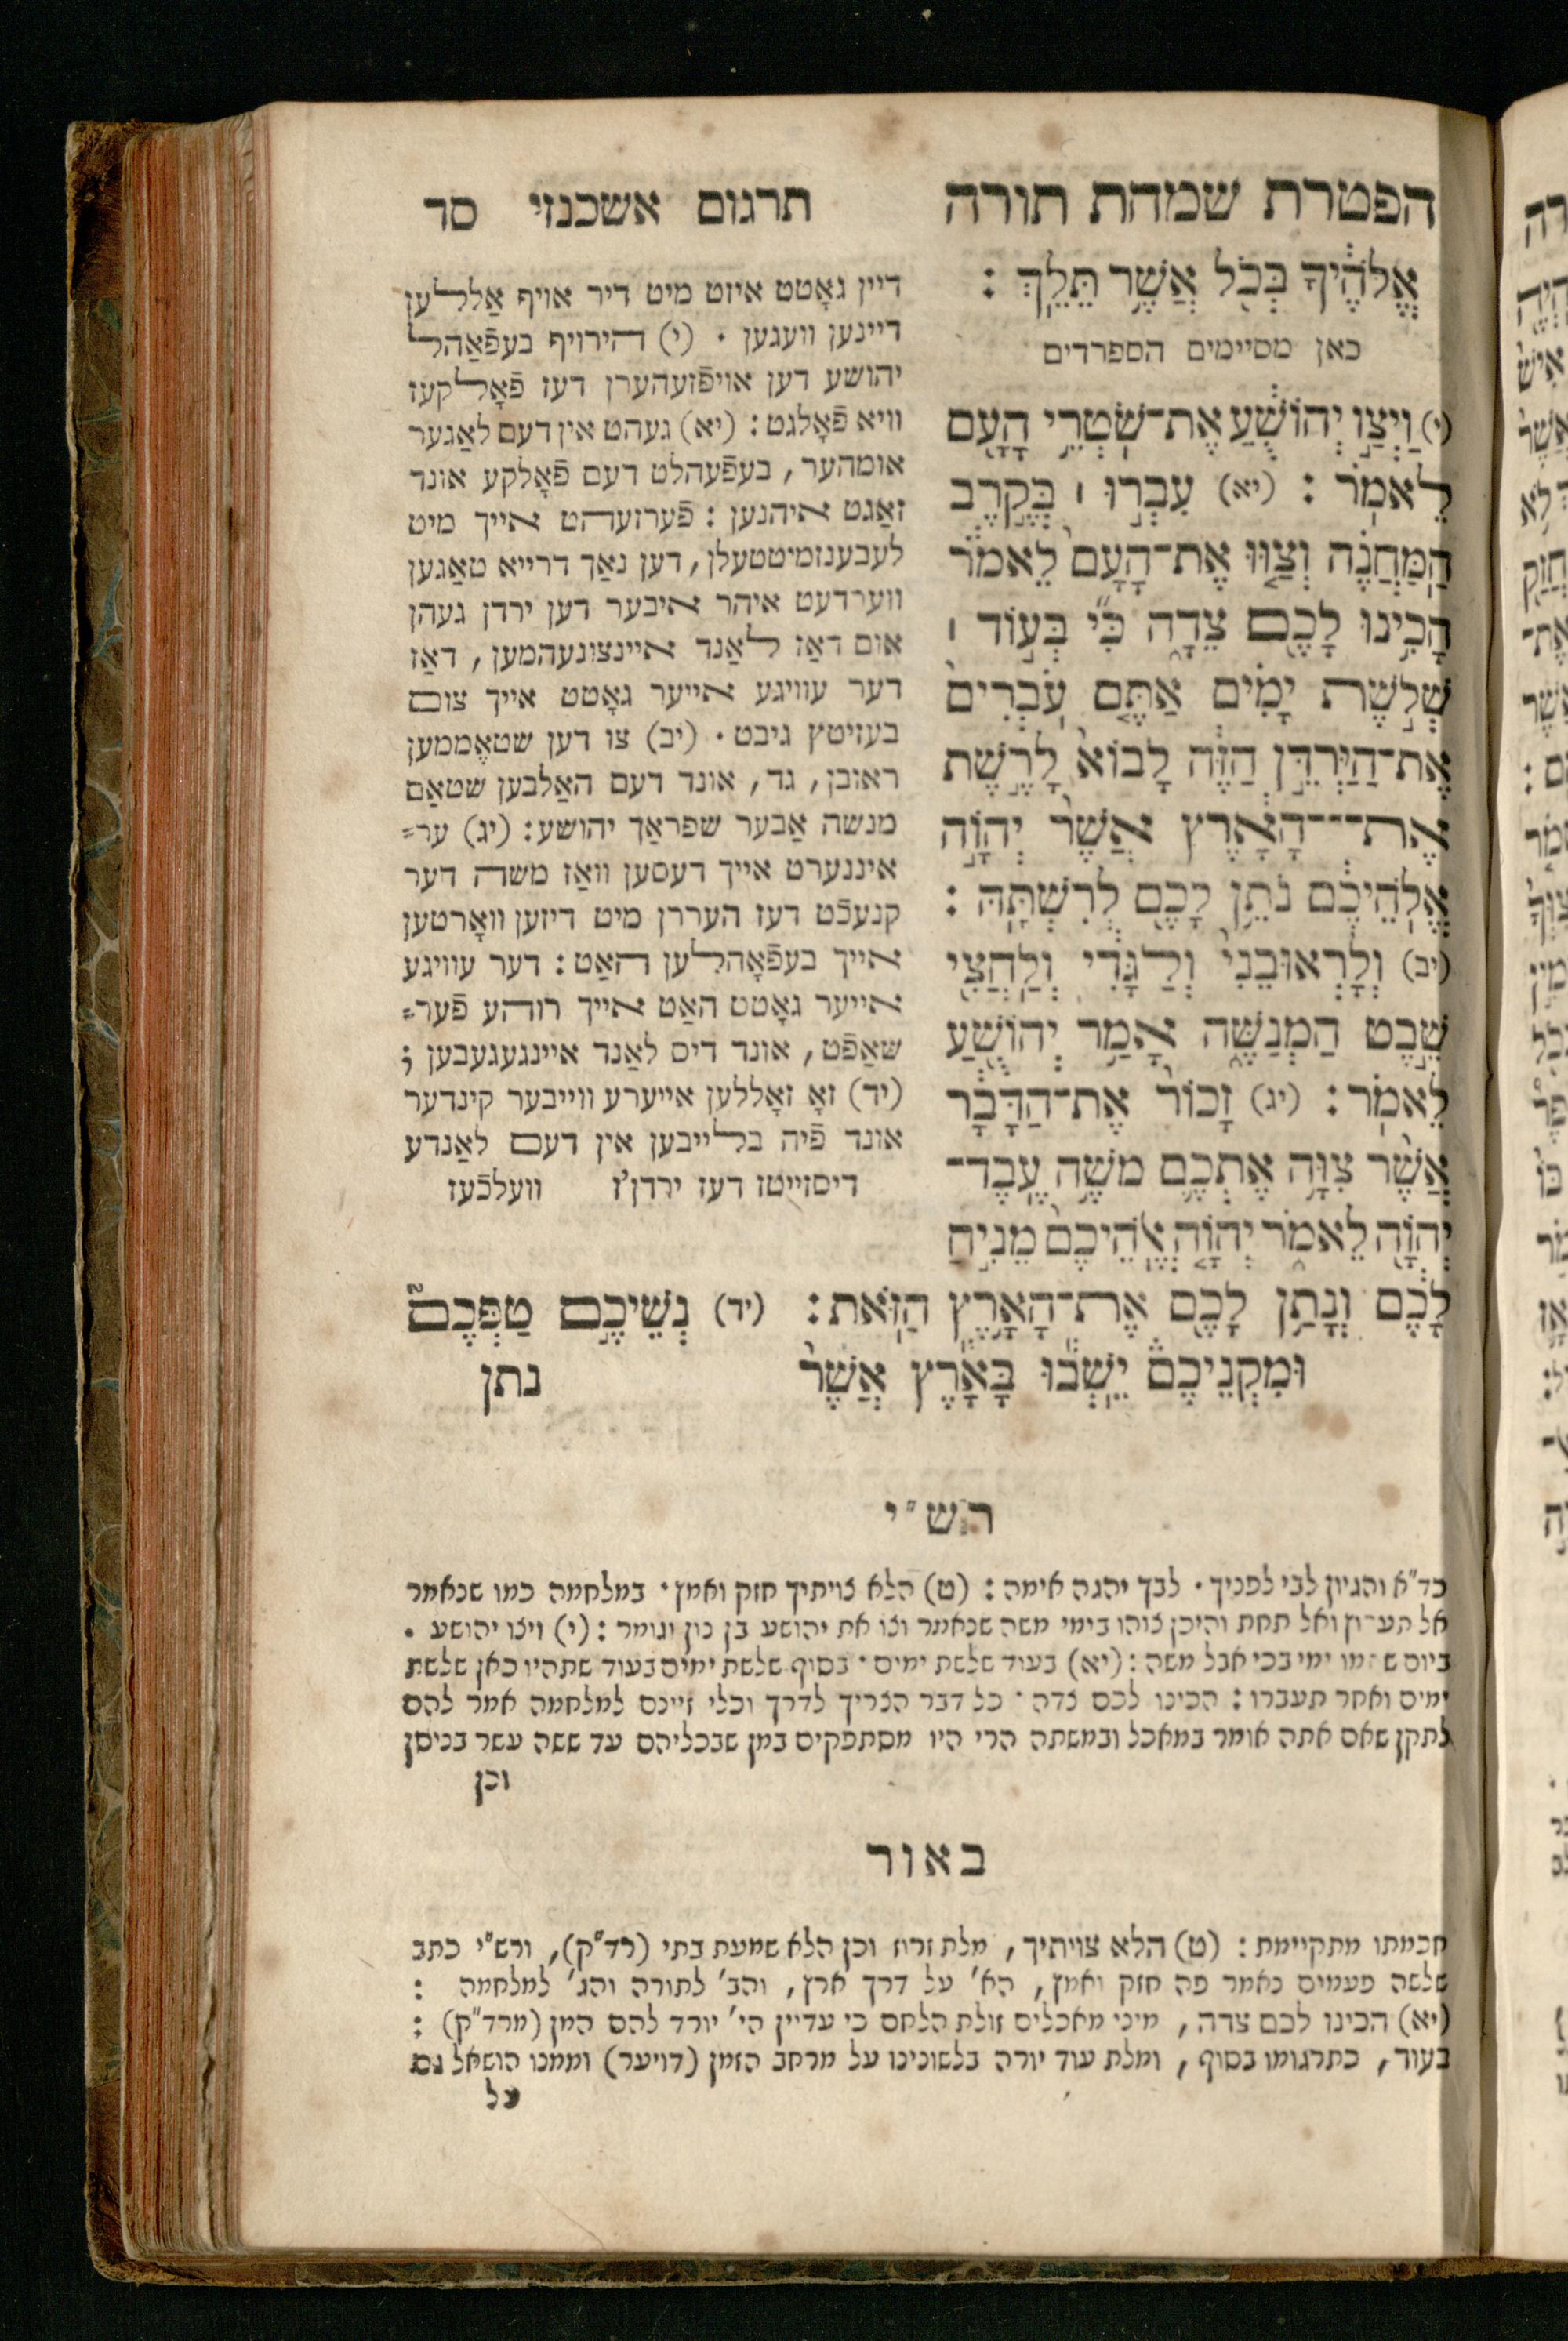 הפטרת שמחת תורה
אֱלֹהֶ֔יךָ בְּכֹ֖ל אֲשֶׁ֥ר תֵּלֵֽךְ :
כאן מסיימים הספרדים
(י) וַיְצַ֣ו יְהוֹשֻׁ֔עַ אֶת־שֹׁטְרֵ֥י הָעָ֖ם
לֵאמֹֽר : (יא) עִבְר֣וּ ׀ בְּקֶ֣רֶב
הַֽמַּחֲנֶ֗ה וְצַוּ֤וּ אֶת־הָעָם֙ לֵאמֹ֔ר
הָכִ֥ינוּ לָכֶ֖ם צֵדָ֑ה כִּ֞י בְּע֣וֹד ׀
שְׁלֹ֣שֶׁת יָמִ֗ים אַתֶּם֙ עֹֽבְרִים֙
אֶת־הַיַּרְדֵּ֣ן הַזֶּ֔ה לָבוֹא֙ לָרֶ֣שֶׁת
אֶת־הָאָ֔רֶץ אֲשֶׁר֙ יְהֹוָ֣ה
אֱלֹֽהֵיכֶ֔ם נֹתֵ֥ן לָכֶ֖ם לְרִשְׁתָּֽהּ :
(יב) וְלָרֽאוּבֵנִי֙ וְלַגָּדִ֔י וְלַֽחֲצִ֖י
שֵׁ֣בֶט הַֽמְנַשֶּׁ֑ה אָמַ֥ר יְהוֹשֻׁ֖עַ
לֵאמֹֽר : (יג) זָכוֹר֙ אֶת־הַדָּבָ֔ר
אֲשֶׁ֨ר צִוָּ֥ה אֶתְכֶ֛ם מֹשֶׁ֥ה עֶֽבֶד־
יְהֹוָ֖ה לֵאמֹ֑ר יְהֹוָ֤ה אֱלֹֽהֵיכֶם֙ מֵנִ֣יחַ
לָכֶ֔ם וְנָתַ֥ן לָכֶ֖ם אֶת־הָאָ֥רֶץ הַזֹּֽאת : (יד) נְשֵׁיכֶ֣ם טַפְּכֶם֮
וּמִקְנֵיכֶם֒ יֵֽשְׁב֕וּ בָּאָ֕רֶץ אֲשֶׁ֨ר
נתן
תרגום אשכנזי סד
דיין גאָטט איזט מיט דיר אויף אַללען
דיינען וועגען . (י) הירויף בעפֿאַהל
יהושע דען אויפֿזעהערן דעז פֿאָלקעז
וויא פֿאָלגט : (יא) געהט אין דעם לאַגער
אומהער , בעפֿעהלט דעם פֿאָלקע אונד
זאַגט איהנען : פֿערזעהט אייך מיט
לעבענזמיטטעלן , דען נאַך דרייא טאַגען
ווערדעט איהר איבער דען ירדן געהן
אום דאַז לאַנד איינצונעהמען , דאַז
דער עוויגע אייער גאָטט אייך צום
בעזיטץ גיבט . (יב) צו דען שטאֶממען
ראובן , גד , אונד דעם האַלבען שטאַם
מנשה אַבער שפראַך יהושע : (יג) ער=
איננערט אייך דעסען וואַז משה דער
קנעכֿט דעז הערן מיט דיזען וואָרטען
אייך בעפֿאָהלען האַט : דער עוויגע
אייער גאָטט האַט אייך רוהע פֿער=
שאַפֿט , אונד דיס לאַנד איינגעגעבען ;
(יד) זאָ זאָללען אייערע ווייבער קינדער
אונד פֿיה בלייבען אין דעם לאַנדע
דיסזייטז דעז ירדן'ז וועלכֿעז
רש"י
כד"א והגיון לבי לפניך . לבך יהגה אימה : (ט) הלא צויתיך חזק ואמץ . במלחמה כמו שנאמר
אל תערוץ ואל תחת והיכן צוהו בימי משה שנאמר וצו את יהושע בן נון וגומר : (י) ויצו יהושע .
ביום שתמו ימי בכי אבל משה : (יא) בעוד שלשת ימים . בסוף שלשת ימים בעוד שתהיו כאן שלשת
ימים ואחר תעברו : הכינו לכם צדה . כל דבר הצריך לדרך וכלי זיינם למלחמה אמר להם
לתקן שאם אתה אומר במאכל ובמשתה הרי היו מסתפקים במן שבכליהם עד ששה עשר בניסן
וכן
באור
חכמתו מתקיימת : (ט) הלא צויתיך , מלת זרוז וכן הלא שמעת בתי (רד"ק) , ורש"י כתב
שלשה פעמים נאמר פה חזק ואמץ , הא' על דרך ארץ , והב' לתורה והג' למלחמה :
(יא) הכינו לכם צדה , מיני מאכלים זולת הלחם כי עדיין הי' יורד להם המן (מרד"ק) :
בעוד , כתרגומו בסוף , ומלת עוד יורה בלשונינו על מרחב הזמן (דויער) וממנו הושאל גם
על